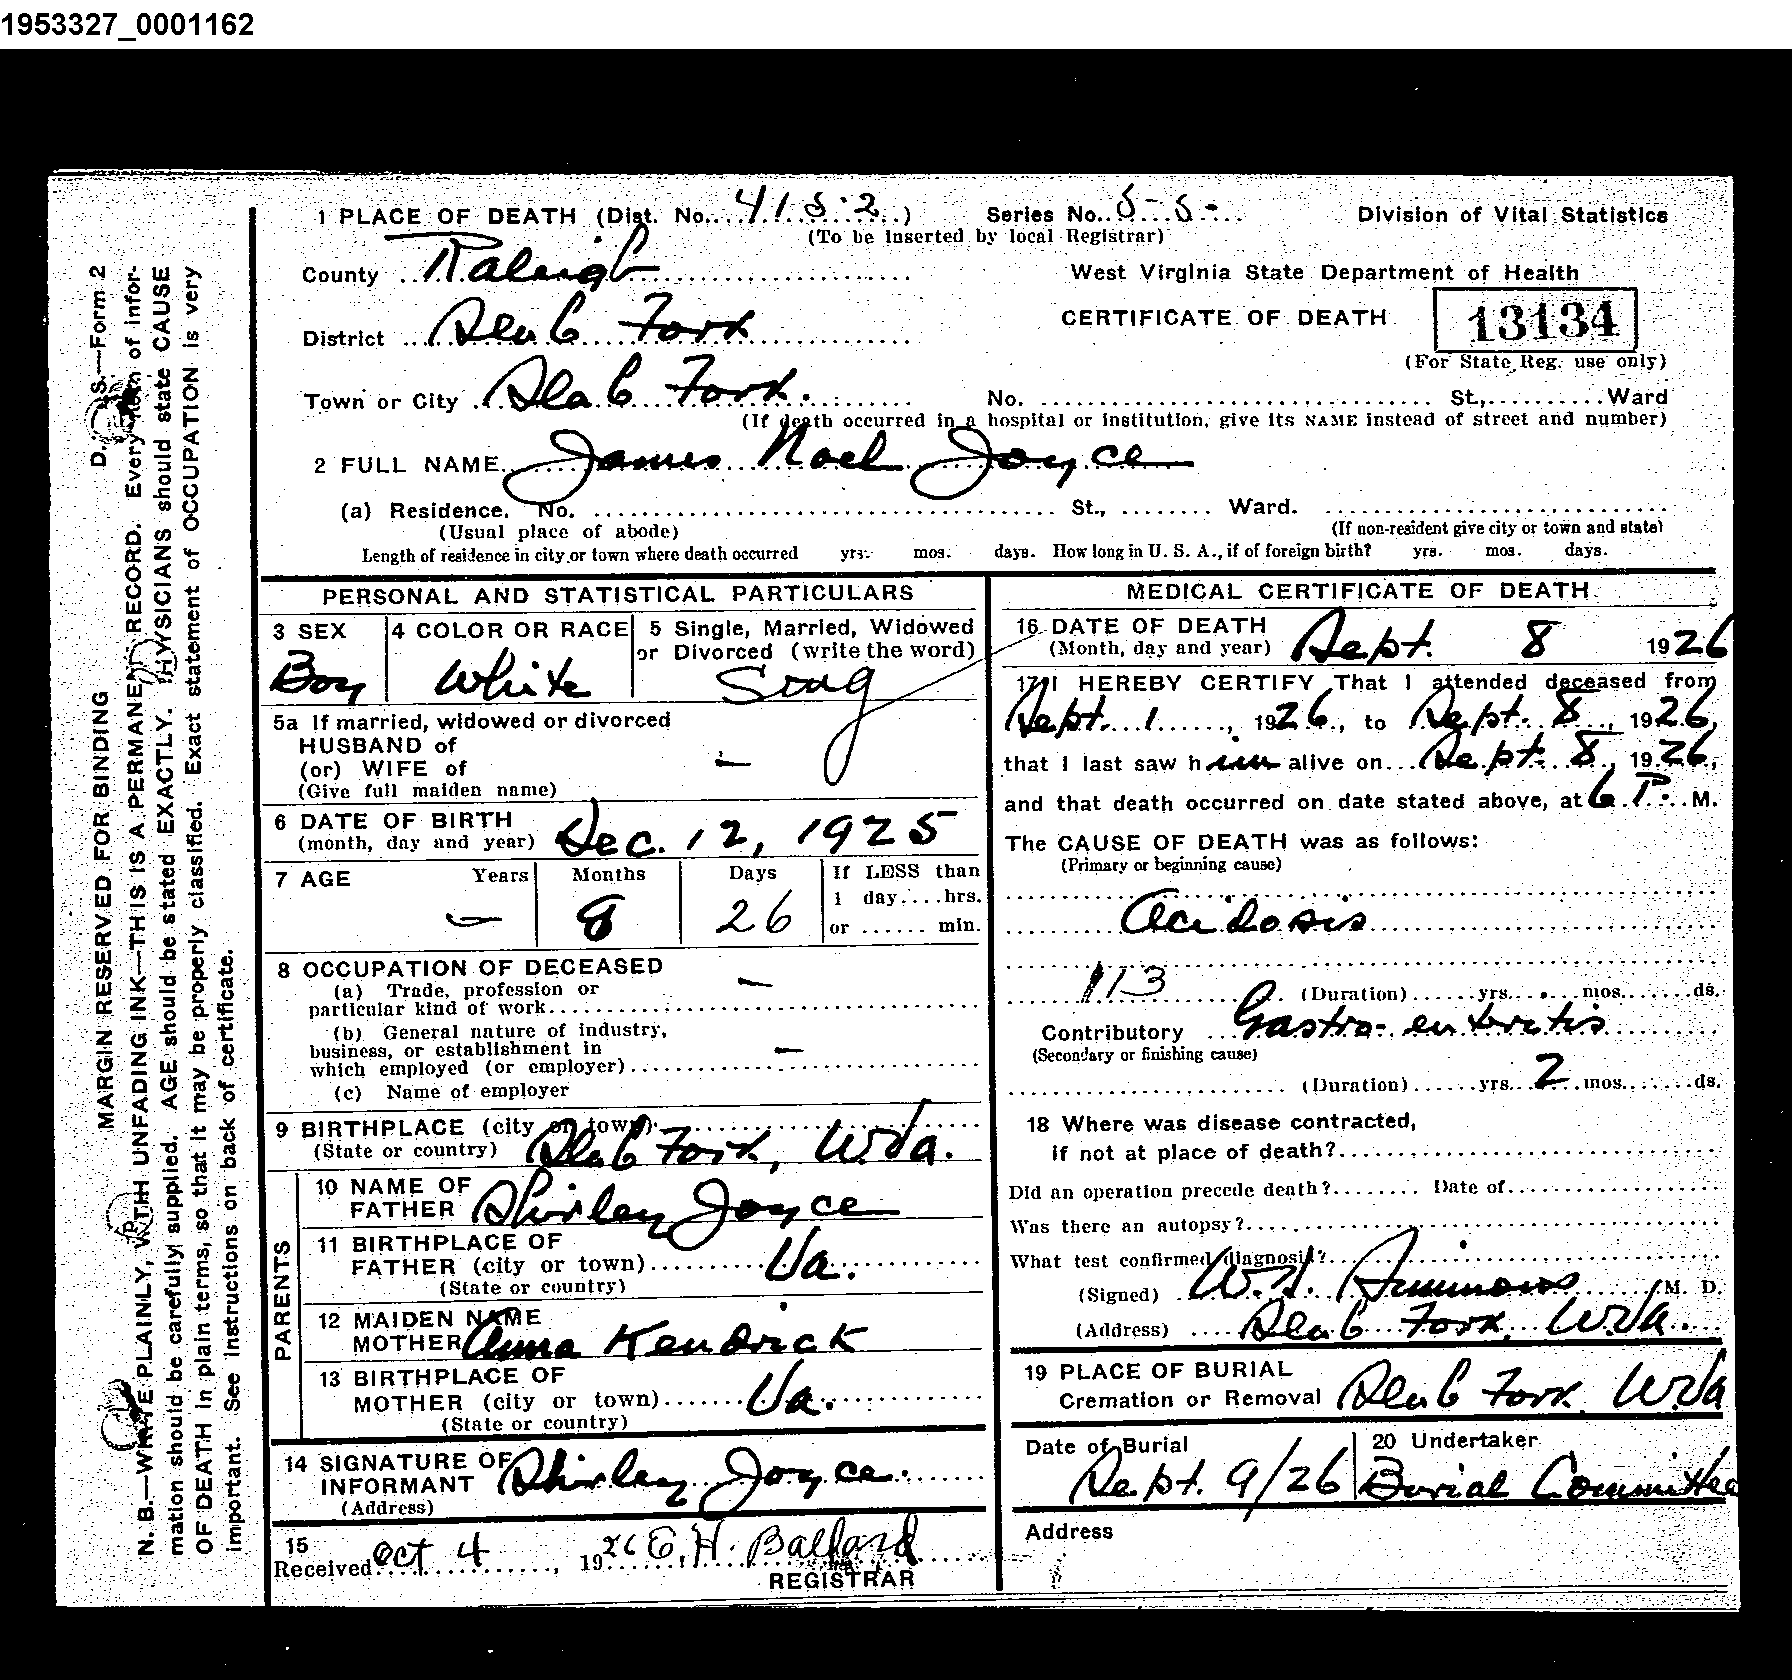 1953327_0001162
1 PLACE OF DEATH (Dist. No. 4152) Series No. 55 Division of Vital Statistics
(To be inserted by local Registrar)
County Raleigh West Virginia State Department of Health
District Slab Fork CERTIFICATE OF DEATH 13134
(For State Reg. use only)
Town or City Slab Fork. No. St., Ward
(If death occurred in a hospital or institution, give its NAME instead of street and number)
2 FULL NAME James Noel Joyce
(a) Residence. No. St., Ward.
(Usual place of abode) (If non-resident give city or town and state)
Length of residence in city or town where death occurred yrs. mos. days. How long in U. S. A., if of foreign birth? yrs. mos. days.
PERSONAL AND STATISTICAL PARTICULARS
3 SEX 4 COLOR OR RACE 5 Single, Married, Widowed
or Divorced (write the word)
Boy White Sing
5a If married, widowed or divorced
HUSBAND of
(or) WIFE of —
(Give full maiden name)
6 DATE OF BIRTH
(month, day and year) Dec. 12, 1925
7 AGE Years Months Days If LESS than
1 day....hrs.
— 8 26 or ...... min.
8 OCCUPATION OF DECEASED
(a) Trade, profession or —
particular kind of work
(b) General nature of industry,
business, or establishment in —
which employed (or employer)
(c) Name of employer
9 BIRTHPLACE (city or town)
(State or country) Slab Fork, W.Va.
PARENTS
10 NAME OF
FATHER Shirley Joyce
11 BIRTHPLACE OF
FATHER (city or town) Va.
(State or country)
12 MAIDEN NAME
MOTHER Anna Kendrick
13 BIRTHPLACE OF
MOTHER (city or town) Va.
(State or country)
14 SIGNATURE OF
INFORMANT Shirley Joyce.
(Address)
15
Received Oct 4, 1926 E. H. Ballard
REGISTRAR
MEDICAL CERTIFICATE OF DEATH
16 DATE OF DEATH
(Month, day and year) Sept. 8 1926
17 I HEREBY CERTIFY That I attended deceased from
Sept. 1, 1926, to Sept. 8, 1926,
that I last saw him alive on Sept. 8, 1926,
and that death occurred on date stated above, at 6 P. M.
The CAUSE OF DEATH was as follows:
(Primary or beginning cause)
Acidosis
113 (Duration) yrs. mos. ds.
Contributory Gastro-enteritis
(Secondary or finishing cause)
(Duration) yrs. 2 mos. ds.
18 Where was disease contracted,
if not at place of death?
Did an operation precede death? Date of
Was there an autopsy?
What test confirmed diagnosis?
(Signed) W.H. Simmons M. D.
(Address) Slab Fork, W.Va.
19 PLACE OF BURIAL
Cremation or Removal Slab Fork, W.Va
Date of Burial 20 Undertaker
Sept. 9/26 Burial Committee
Address
D. S.—Form 2
MARGIN RESERVED FOR BINDING
N. B.—WRITE PLAINLY, WITH UNFADING INK—THIS IS A PERMANENT RECORD. Every item of infor-
mation should be carefully supplied. AGE should be stated EXACTLY. PHYSICIANS should state CAUSE
OF DEATH in plain terms, so that it may be properly classified. Exact statement of OCCUPATION is very
important. See instructions on back of certificate.